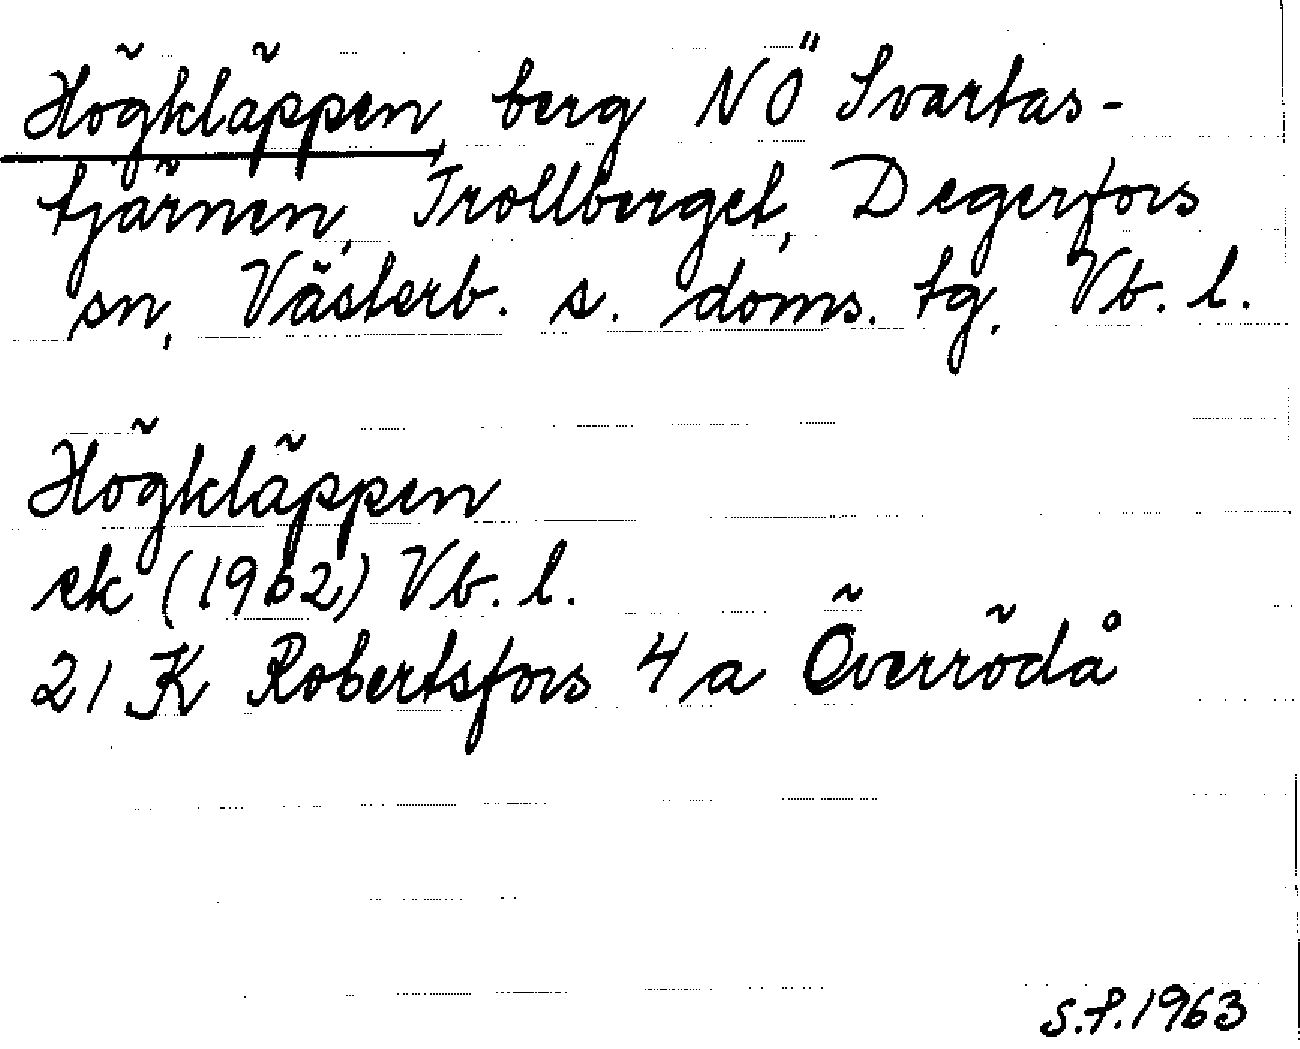 Högkläppen, berg NÖ Svartas-
tjärnen, Trollberget, Degerfors
sn, Västerb. s. doms. tg. Vb. l.
Högkläppen
ek (1962) Vb. l.
21 K Robertsfors 4 a Överrödå
S.P. 1963